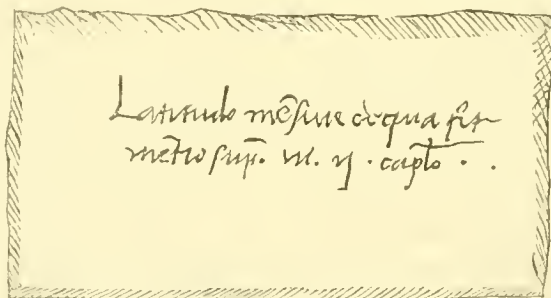 Latitudo mēsure d̄ qua fit
mētio sup̄. in. ij. capl̄o . .